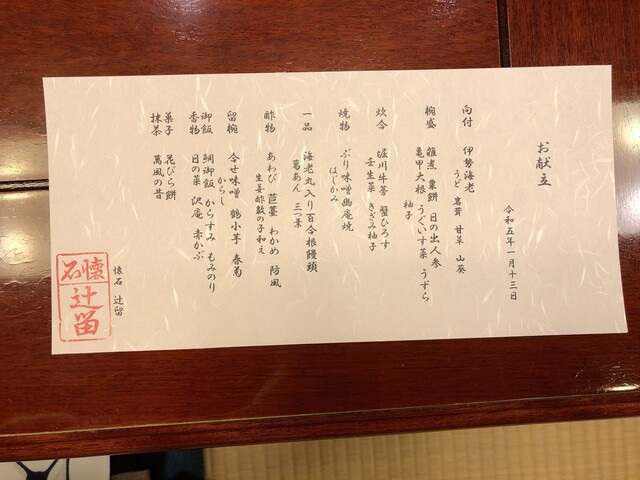 お献立
令和五年一月十三日
向付　伊勢海老
うど　岩茸　甘草　山葵
椀盛　雑煮　粟餅　日の出人参
亀甲大根　うぐいす菜　うずら
柚子
炊合　堀川牛蒡　蟹ひろす
壬生菜　きざみ柚子
焼物　ぶり味噌幽庵焼
はじかみ
一品　海老丸入り百合根饅頭
葛あん　三つ葉
酢物　あわび　苣薹　わかめ　防風
生姜酢　鼓の子和え
留椀　合せ味噌　鶴小芋　春菊
からし
御飯　鯛御飯　からすみ　もみのり
香物　日の菜　沢庵　赤かぶ
菓子　花びら餅
抹茶　萬風の昔
懐石　辻留
懐石
辻留